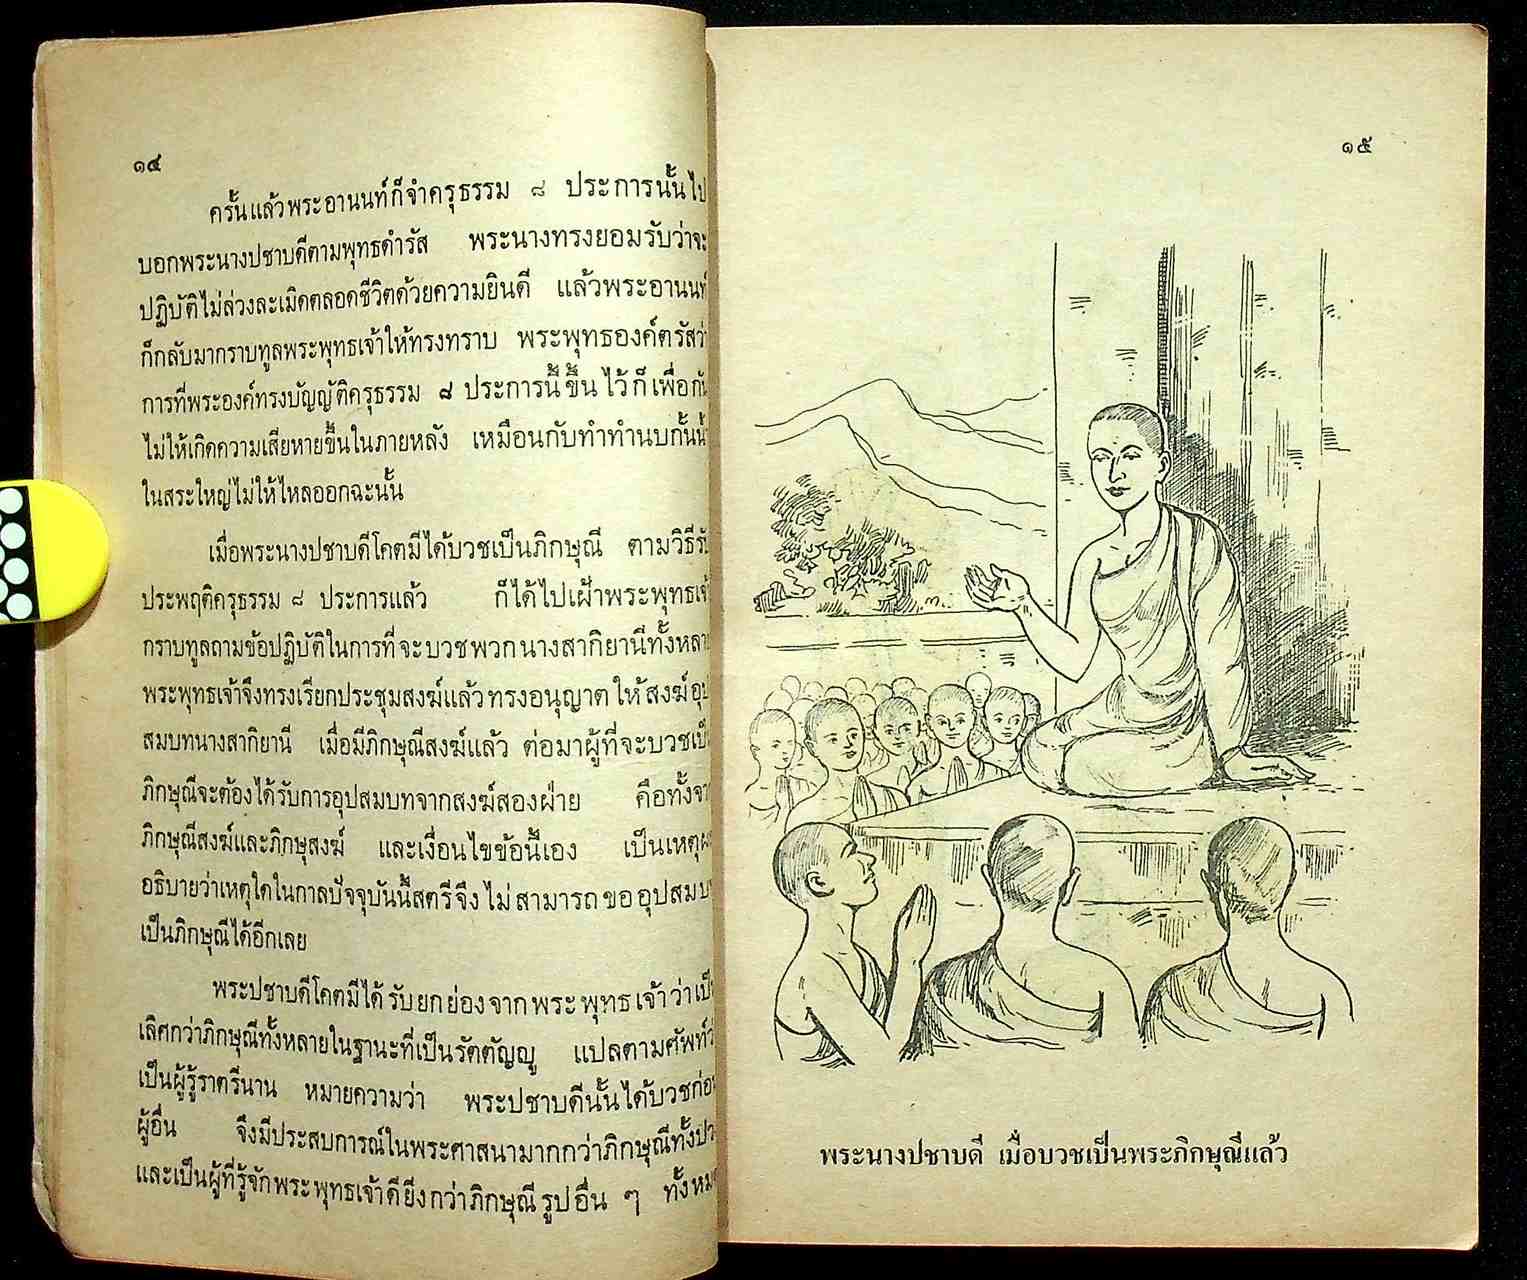 ๑๔
ครั้นแล้วพระอานนท์ก็จำครุธรรม ๘ ประการนั้นไป
บอกพระนางปชาบดีตามพุทธดำรัส พระนางทรงยอมรับว่าจะ
ปฏิบัติไม่ล่วงละเมิดตลอดชีวิตด้วยความยินดี แล้วพระอานนท์
ก็กลับมากราบทูลพระพุทธเจ้าให้ทรงทราบ พระพุทธองค์ตรัสว่า
การที่พระองค์ทรงบัญญัติครุธรรม ๘ ประการนี้ขึ้นไว้ก็เพื่อกัน
ไม่ให้เกิดความเสียหายขึ้นในภายหลัง เหมือนกับทำทำนบกั้นน้ำ
ในสระใหญ่ไม่ให้ไหลออกฉะนั้น
เมื่อพระนางปชาบดีโคตมีได้บวชเป็นภิกษุณี ตามวิธีรับ
ประพฤติครุธรรม ๘ ประการแล้ว ก็ได้ไปเฝ้าพระพุทธเจ้า
กราบทูลถามข้อปฏิบัติในการที่จะบวชพวกนางสากิยานีทั้งหลาย
พระพุทธเจ้าจึงทรงเรียกประชุมสงฆ์แล้วทรงอนุญาตให้สงฆ์อุป
สมบทนางสากิยานี เมื่อมีภิกษุณีสงฆ์แล้ว ต่อมาผู้ที่จะบวชเป็น
ภิกษุณีจะต้องได้รับการอุปสมบทจากสงฆ์สองฝ่าย คือทั้งจาก
ภิกษุณีสงฆ์และภิกษุสงฆ์ และเงื่อนไขข้อนี้เอง เป็นเหตุผล
อธิบายว่าเหตุใดในกาลปัจจุบันนี้สตรีจึงไม่สามารถขออุปสมบท
เป็นภิกษุณีได้อีกเลย
พระปชาบดีโคตมีได้รับยกย่องจากพระพุทธเจ้าว่าเป็น
เลิศกว่าภิกษุณีทั้งหลายในฐานะที่เป็นรัตตัญญู แปลตามศัพท์ว่า
เป็นผู้รู้ราตรีนาน หมายความว่า พระปชาบดีนั้นได้บวชก่อน
ผู้อื่น จึงมีประสบการณ์ในพระศาสนามากกว่าภิกษุณีทั้งปวง
และเป็นผู้ที่รู้จักพระพุทธเจ้าดียิ่งกว่าภิกษุณีรูปอื่น ๆ ทั้งหมด
๑๕
พระนางปชาบดี เมื่อบวชเป็นพระภิกษุณีแล้ว